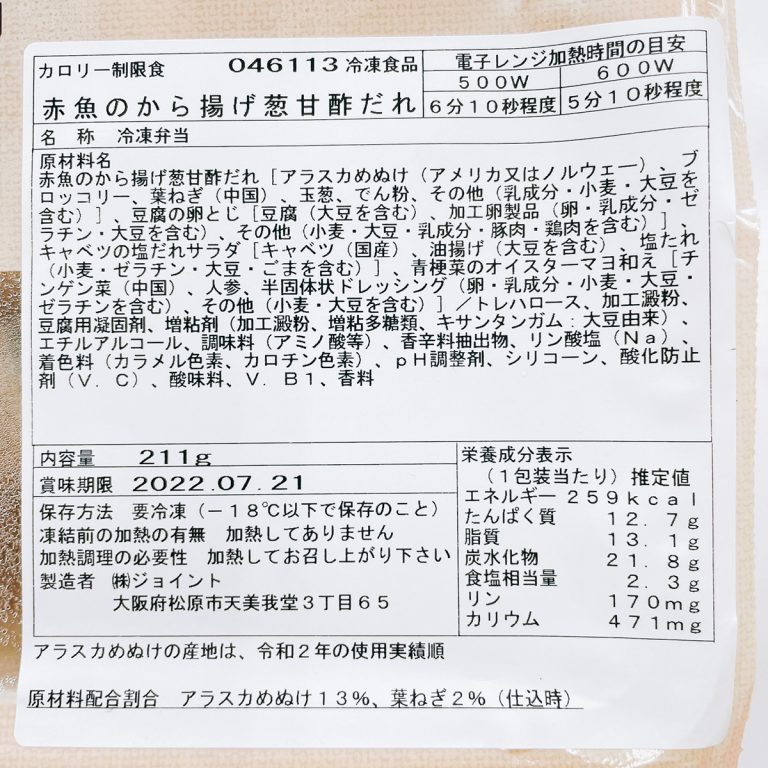 カロリー制限食 046113 冷凍食品
電子レンジ加熱時間の目安
500W 600W
6分10秒程度 5分10秒程度
赤魚のから揚げ葱甘酢だれ
名 称 冷凍弁当
原材料名
赤魚のから揚げ葱甘酢だれ［アラスカめぬけ（アメリカ又はノルウェー）、ブ
ロッコリー、葉ねぎ（中国）、玉葱、でん粉、その他（乳成分・小麦・大豆を
含む）］、豆腐の卵とじ［豆腐（大豆を含む）、加工卵製品（卵・乳成分・ゼ
ラチン・大豆を含む）、その他（小麦・大豆・乳成分・豚肉・鶏肉を含む）］、
キャベツの塩だれサラダ［キャベツ（国産）、油揚げ（大豆を含む）、塩たれ
（小麦・ゼラチン・大豆・ごまを含む）］、青梗菜のオイスターマヨ和え［チ
ンゲン菜（中国）、人参、半固体状ドレッシング（卵・乳成分・小麦・大豆・
ゼラチンを含む）、その他（小麦・大豆を含む）］／トレハロース、加工澱粉、
豆腐用凝固剤、増粘剤（加工澱粉、増粘多糖類、キサンタンガム：大豆由来）、
エチルアルコール、調味料（アミノ酸等）、香辛料抽出物、リン酸塩（Na）、
着色料（カラメル色素、カロチン色素）、pH調整剤、シリコーン、酸化防止
剤（V．C）、酸味料、V．B1、香料
内容量 211g
賞味期限 2022.07.21
保存方法 要冷凍（－18℃以下で保存のこと）
凍結前の加熱の有無 加熱してありません
加熱調理の必要性 加熱してお召し上がり下さい
製造者 ㈱ジョイント
大阪府松原市天美我堂3丁目65
栄養成分表示
（1包装当たり）推定値
エネルギー 259kcal
たんぱく質 12．7g
脂質 13．1g
炭水化物 21．8g
食塩相当量 2．3g
リン 170mg
カリウム 471mg
アラスカめぬけの産地は、令和2年の使用実績順
原材料配合割合 アラスカめぬけ13％、葉ねぎ2％（仕込時）